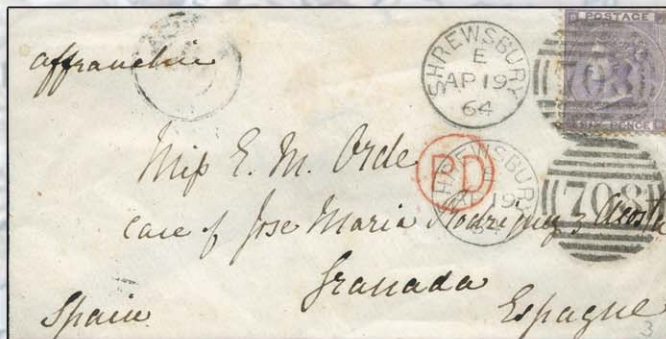 affranchie
SHREWSBURY
E
AP 19
64
POSTAGE
SIX PENCE
708
Miss E. M. Orde
PD
SHREWSBURY
AP 19
64
708
care of Jose Maria Rodriguez y Acosta
Granada
Spain
Espagne
3